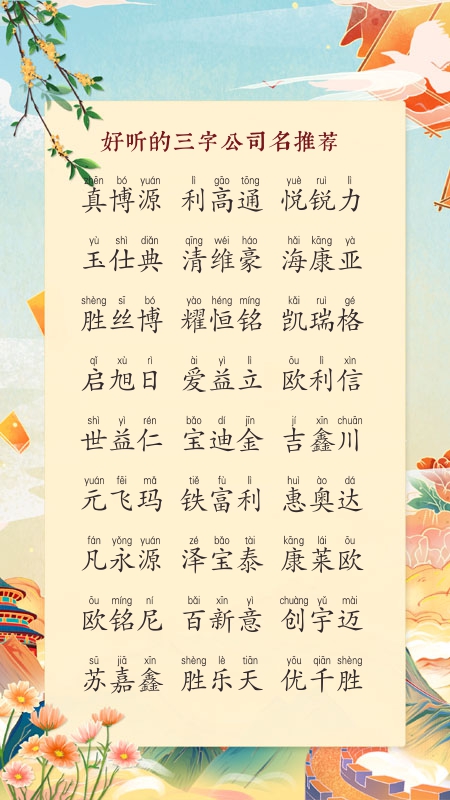 好听的三字公司名推荐
zhēn bó yuán lì gāo tōng yuè ruì lì
真博源 利高通 悦锐力
yù shì diǎn qīng wéi háo hǎi kāng yà
玉仕典 清维豪 海康亚
shèng sī bó yào héng míng kǎi ruì gé
胜丝博 耀恒铭 凯瑞格
qǐ xù rì ài yì lì ōu lì xìn
启旭日 爱益立 欧利信
shì yì rén bǎo dí jīn jí xīn chuān
世益仁 宝迪金 吉鑫川
yuán fēi mǎ tiě fù lì huì ào dá
元飞玛 铁富利 惠奥达
fán yǒng yuán zé bǎo tài kāng lái ōu
凡永源 泽宝泰 康莱欧
ōu míng ní bǎi xīn yì chuàng yǔ mài
欧铭尼 百新意 创宇迈
sū jiā xīn shèng lè tiān yōu qiān shèng
苏嘉鑫 胜乐天 优千胜